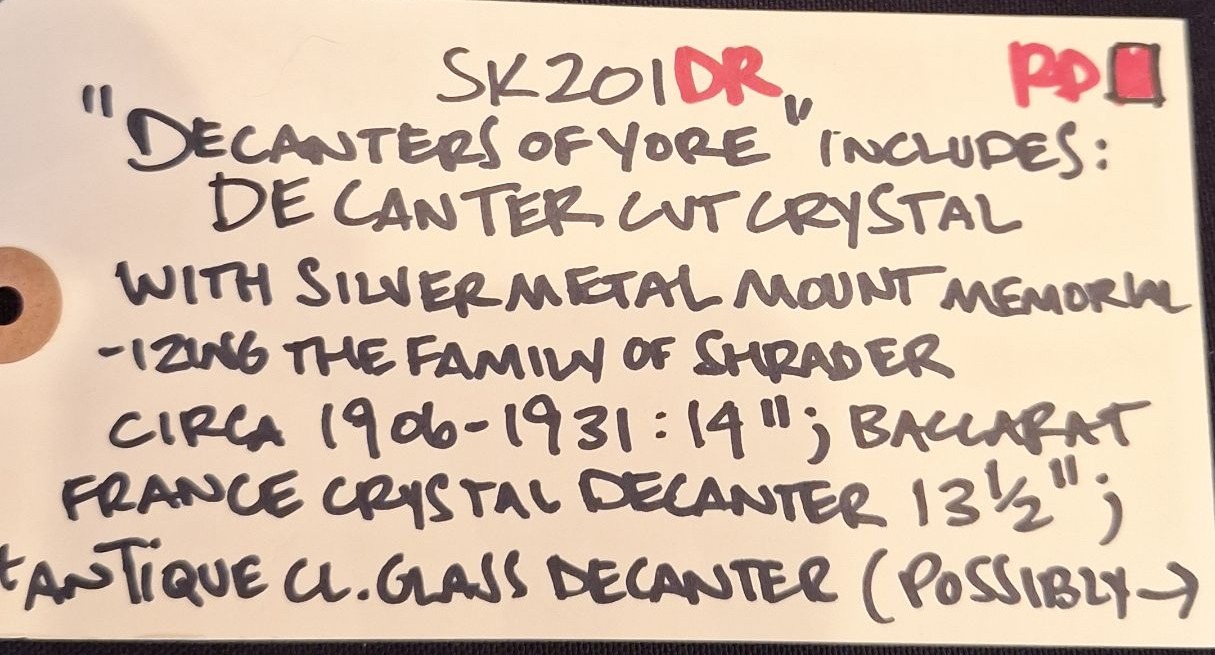 SK201DR RD
"DECANTERS OF YORE" INCLUDES:
DECANTER CUT CRYSTAL
WITH SILVER METAL MOUNT MEMORIAL
-IZING THE FAMILY OF SHRADER
CIRCA 1906-1931:14"; BACCARAT
FRANCE CRYSTAL DECANTER 13½";
+ANTIQUE CL. GLASS DECANTER (POSSIBLY→